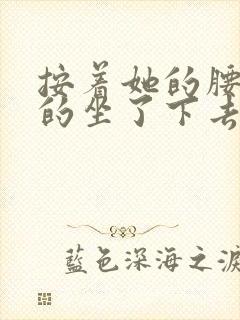 按着她的腰
的坐了下去
藍色深海之淚